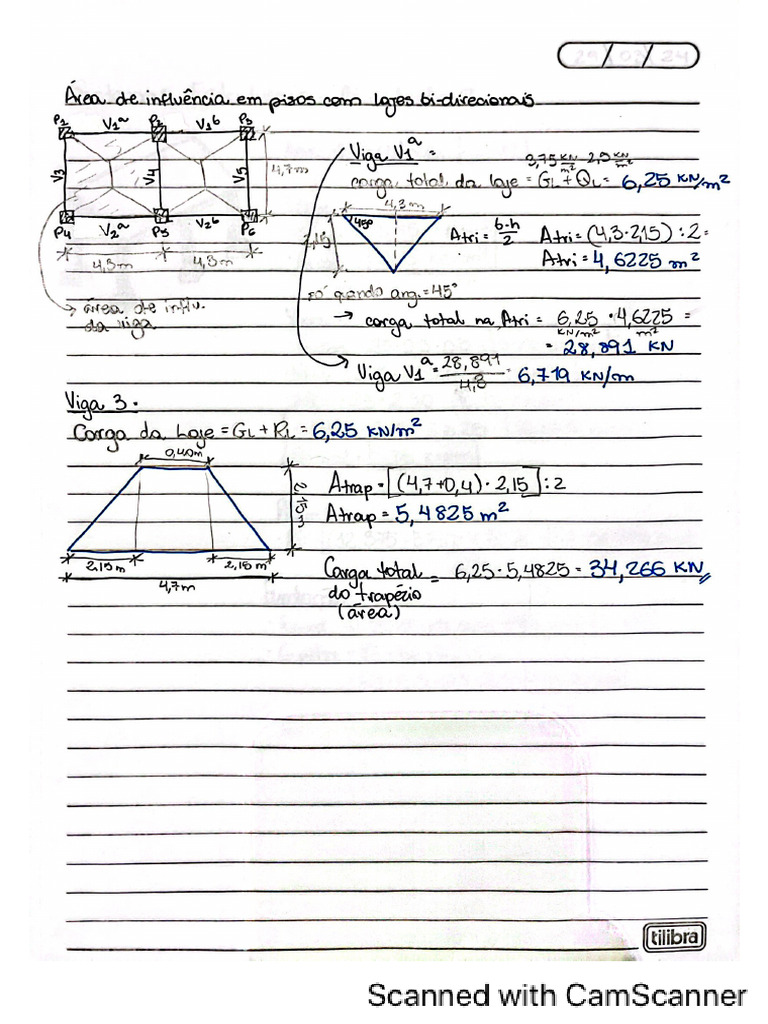 29/03/24
Área de influência em pisos com lajes bi-direcionais
P1 V1ª P2 V1b P3
V3 V4 V5 4,7m
P4 V2ª P5 V2b P6
4,3m 4,3m
→ área de influ.
da viga
Viga V1ª =
3,75 KN/m² 2,5 KN/m²
carga total da laje = GL + QL = 6,25 KN/m²
4,3m
45º
2,15
Atri = b·h/2 Atri = (4,3·2,15) : 2 =
Atri = 4,6225 m²
só quando ang. = 45°
→ carga total na Atri = 6,25 · 4,6225 =
KN/m² m²
= 28,891 KN
Viga V1ª = 28,891/4,3 = 6,719 KN/m
Viga 3.
Carga da Laje = GL + RL = 6,25 KN/m²
0,40m
2,15m
2,15m 2,15m
4,7m
Atrap = [(4,7+0,4) · 2,15] : 2
Atrap = 5,4825 m²
Carga total = 6,25 · 5,4825 = 34,266 KN
do trapézio
(área)
tilibra
Scanned with CamScanner